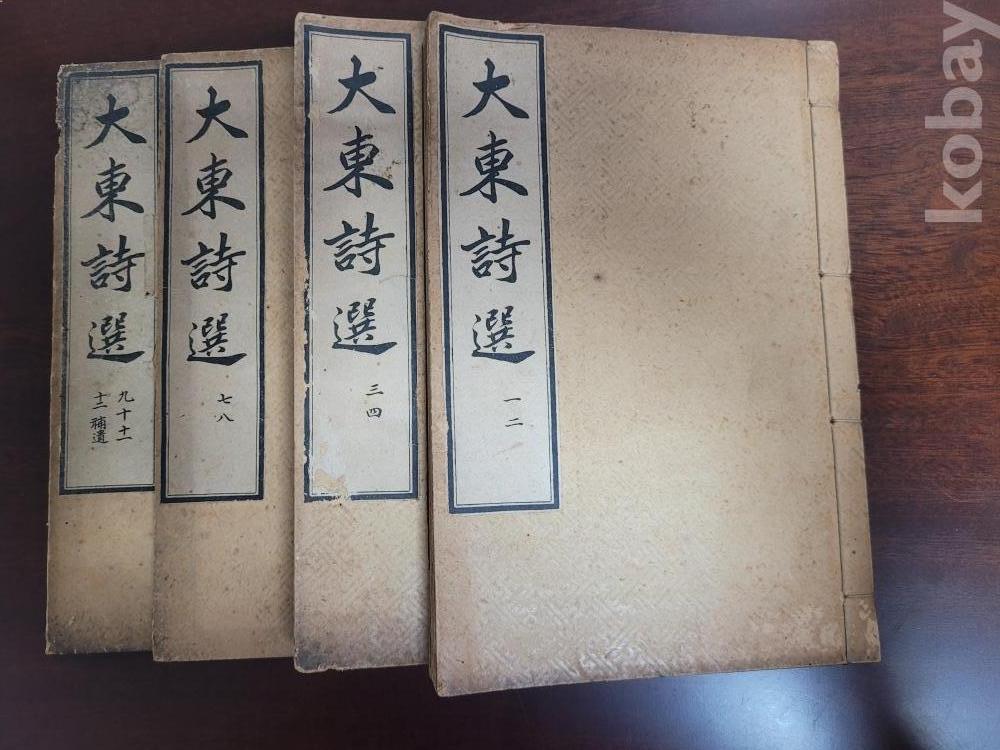 大東詩選
一二
大東詩選
三四
大東詩選
七八
大東詩選
九十十一
十二補遺
kobay